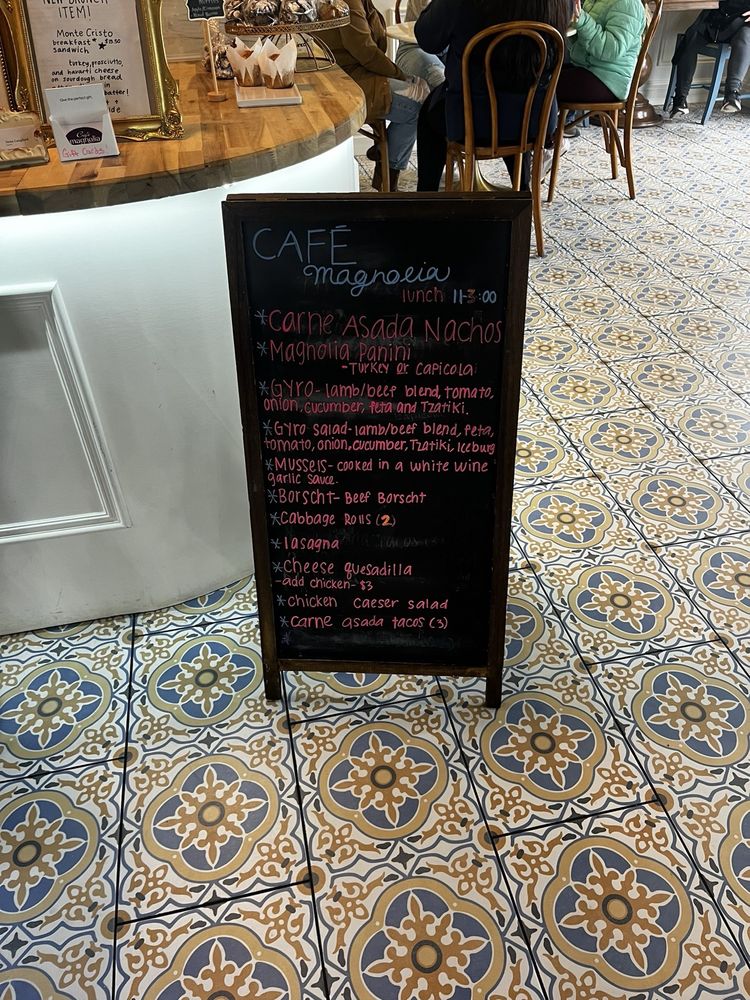 NEW BRUNCH
ITEM!
Monte Cristo
breakfast
sandwich
turkey, prosciutto,
and havarti cheese
on sourdough bread
Café
magnolia
Gift Cards!
CAFÉ
magnolia
lunch 11-3:00
*Carne Asada Nachos
*Magnolia Panini
-Turkey or Capicola
*Gyro- lamb/beef blend, tomato,
onion, cucumber, feta and Tzatiki.
*Gyro salad-lamb/beef blend, feta,
tomato, onion, cucumber, Tzatiki, Iceburg
*Mussels- cooked in a white wine
garlic sauce.
*Borscht- Beef Borscht
*Cabbage Rolls (2)
*lasagna
*Cheese quesadilla
-add chicken- $3
*chicken Caeser salad
*carne asada tacos (3)
*